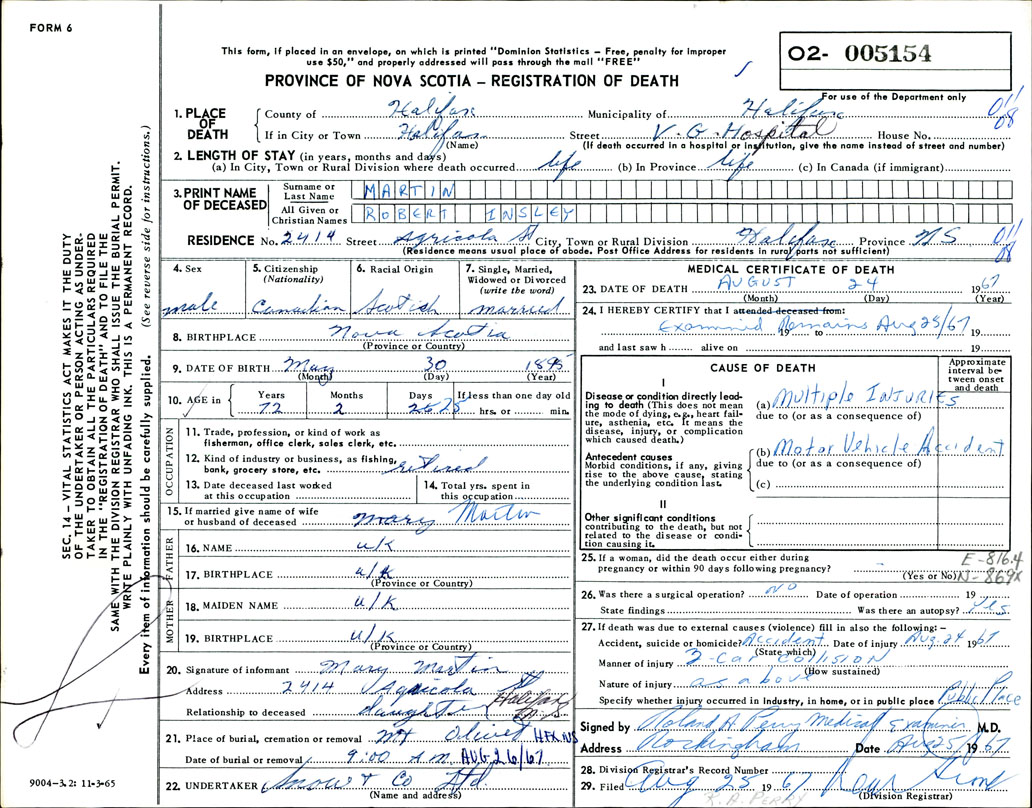 FORM 6
This form, if placed in an envelope, on which is printed "Dominion Statistics – Free, penalty for improper
use $50," and properly addressed will pass through the mail "FREE"
PROVINCE OF NOVA SCOTIA – REGISTRATION OF DEATH
O2- 005154
For use of the Department only
011
08
1. PLACE OF DEATH
County of Halifax Municipality of Halifax
If in City or Town Halifax Street V. G. Hospital House No.
(Name) (If death occurred in a hospital or institution, give the name instead of street and number)
2. LENGTH OF STAY (in years, months and days)
(a) In City, Town or Rural Division where death occurred life (b) In Province life (c) In Canada (if immigrant)
3. PRINT NAME OF DECEASED
Surname or Last Name MARTIN
All Given or Christian Names ROBERT INSLEY
RESIDENCE No. 2414 Street Agricola St City, Town or Rural Division Halifax Province N S
011
08
(Residence means usual place of abode. Post Office Address for residents in rural parts not sufficient)
4. Sex
male
5. Citizenship (Nationality)
Canadian
6. Racial Origin
Scotish
7. Single, Married, Widowed or Divorced (write the word)
married
8. BIRTHPLACE Nova Scotia
(Province or Country)
9. DATE OF BIRTH May 30 1895
(Month) (Day) (Year)
10. AGE in Years Months Days If less than one day old
72 2 26 25 hrs. or min.
OCCUPATION
11. Trade, profession, or kind of work as
fisherman, office clerk, sales clerk, etc.
12. Kind of industry or business, as fishing,
bank, grocery store, etc. retired
13. Date deceased last worked
at this occupation
14. Total yrs. spent in
this occupation
15. If married give name of wife
or husband of deceased Mary Martin
FATHER
16. NAME u/k
17. BIRTHPLACE u/k
(Province or Country)
MOTHER
18. MAIDEN NAME u/k
19. BIRTHPLACE u/k
(Province or Country)
20. Signature of informant Mary Martin
Address 2414 Agricola St Halifax N.S.
Relationship to deceased daughter
21. Place of burial, cremation or removal Mt Olivet HFX NS
Date of burial or removal 9:00 A.M. AUG 26/67
22. UNDERTAKER Snow & Co Ltd.
(Name and address)
MEDICAL CERTIFICATE OF DEATH
23. DATE OF DEATH AUGUST 24 1967
(Month) (Day) (Year)
24. I HEREBY CERTIFY that I attended deceased from:
Examined Remains Aug 25/67
19 to 19
and last saw h alive on 19
CAUSE OF DEATH
Approximate interval between onset and death
I
Disease or condition directly leading to death (This does not mean mode of dying, e.g., heart failure, asthenia, etc. It means the disease, injury, or complication which caused death.)
(a) Multiple INJURIES
due to (or as a consequence of)
Antecedent causes
Morbid conditions, if any, giving rise to the above cause, stating the underlying condition last.
(b) Motor Vehicle Accident
due to (or as a consequence of)
(c)
II
Other significant conditions
contributing to the death, but not related to the disease or condition causing it.
25. If a woman, did the death occur either during
pregnancy or within 90 days following pregnancy?
(Yes or No)
E-816.4
N-869x
26. Was there a surgical operation? NO Date of operation 19
State findings Was there an autopsy? Yes
27. If death was due to external causes (violence) fill in also the following:–
Accident, suicide or homicide? Accident Date of injury Aug. 24 1967
(State which)
Manner of injury 2-Car COLLISION
(How sustained)
Nature of injury as above
Specify whether injury occurred in industry, in home, or in public place Public Place
Signed by Roland A Perry Medical Examiner M.D.
Address Rockingham Date Aug 25/ 1967
28. Division Registrar's Record Number
29. Filed Aug 25 1967
(Division Registrar)
R. A. PERRY
SEC. 14 – VITAL STATISTICS ACT MAKES IT THE DUTY
OF THE UNDERTAKER OR PERSON ACTING AS UNDER-
TAKER TO OBTAIN ALL THE PARTICULARS REQUIRED
IN THE "REGISTRATION OF DEATH" AND TO FILE THE
SAME WITH THE DIVISION REGISTRAR WHO SHALL ISSUE THE BURIAL PERMIT.
WRITE PLAINLY WITH UNFADING INK. THIS IS A PERMANENT RECORD.
Every item of information should be carefully supplied. (See reverse side for instructions.)
9004–3.2: 11-3-65